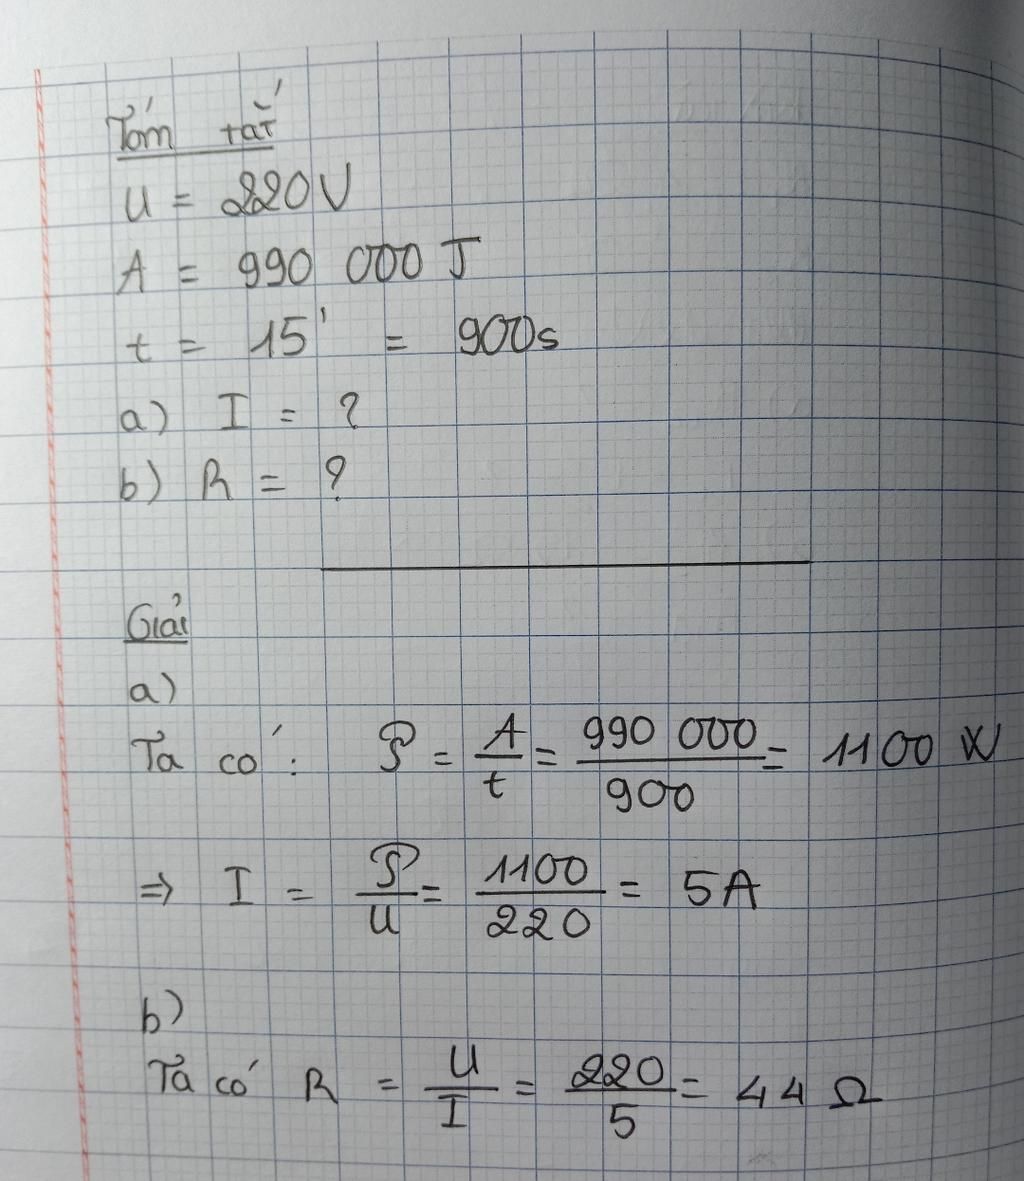 Tóm tắt
U = 220V
A = 990 000 J
t = 15' = 900s
a) I = ?
b) R = ?
Giải
a)
Ta có: P = A/t = 990 000/900 = 1100 W
=> I = P/U = 1100/220 = 5A
b)
Ta có R = U/I = 220/5 = 44 Ω